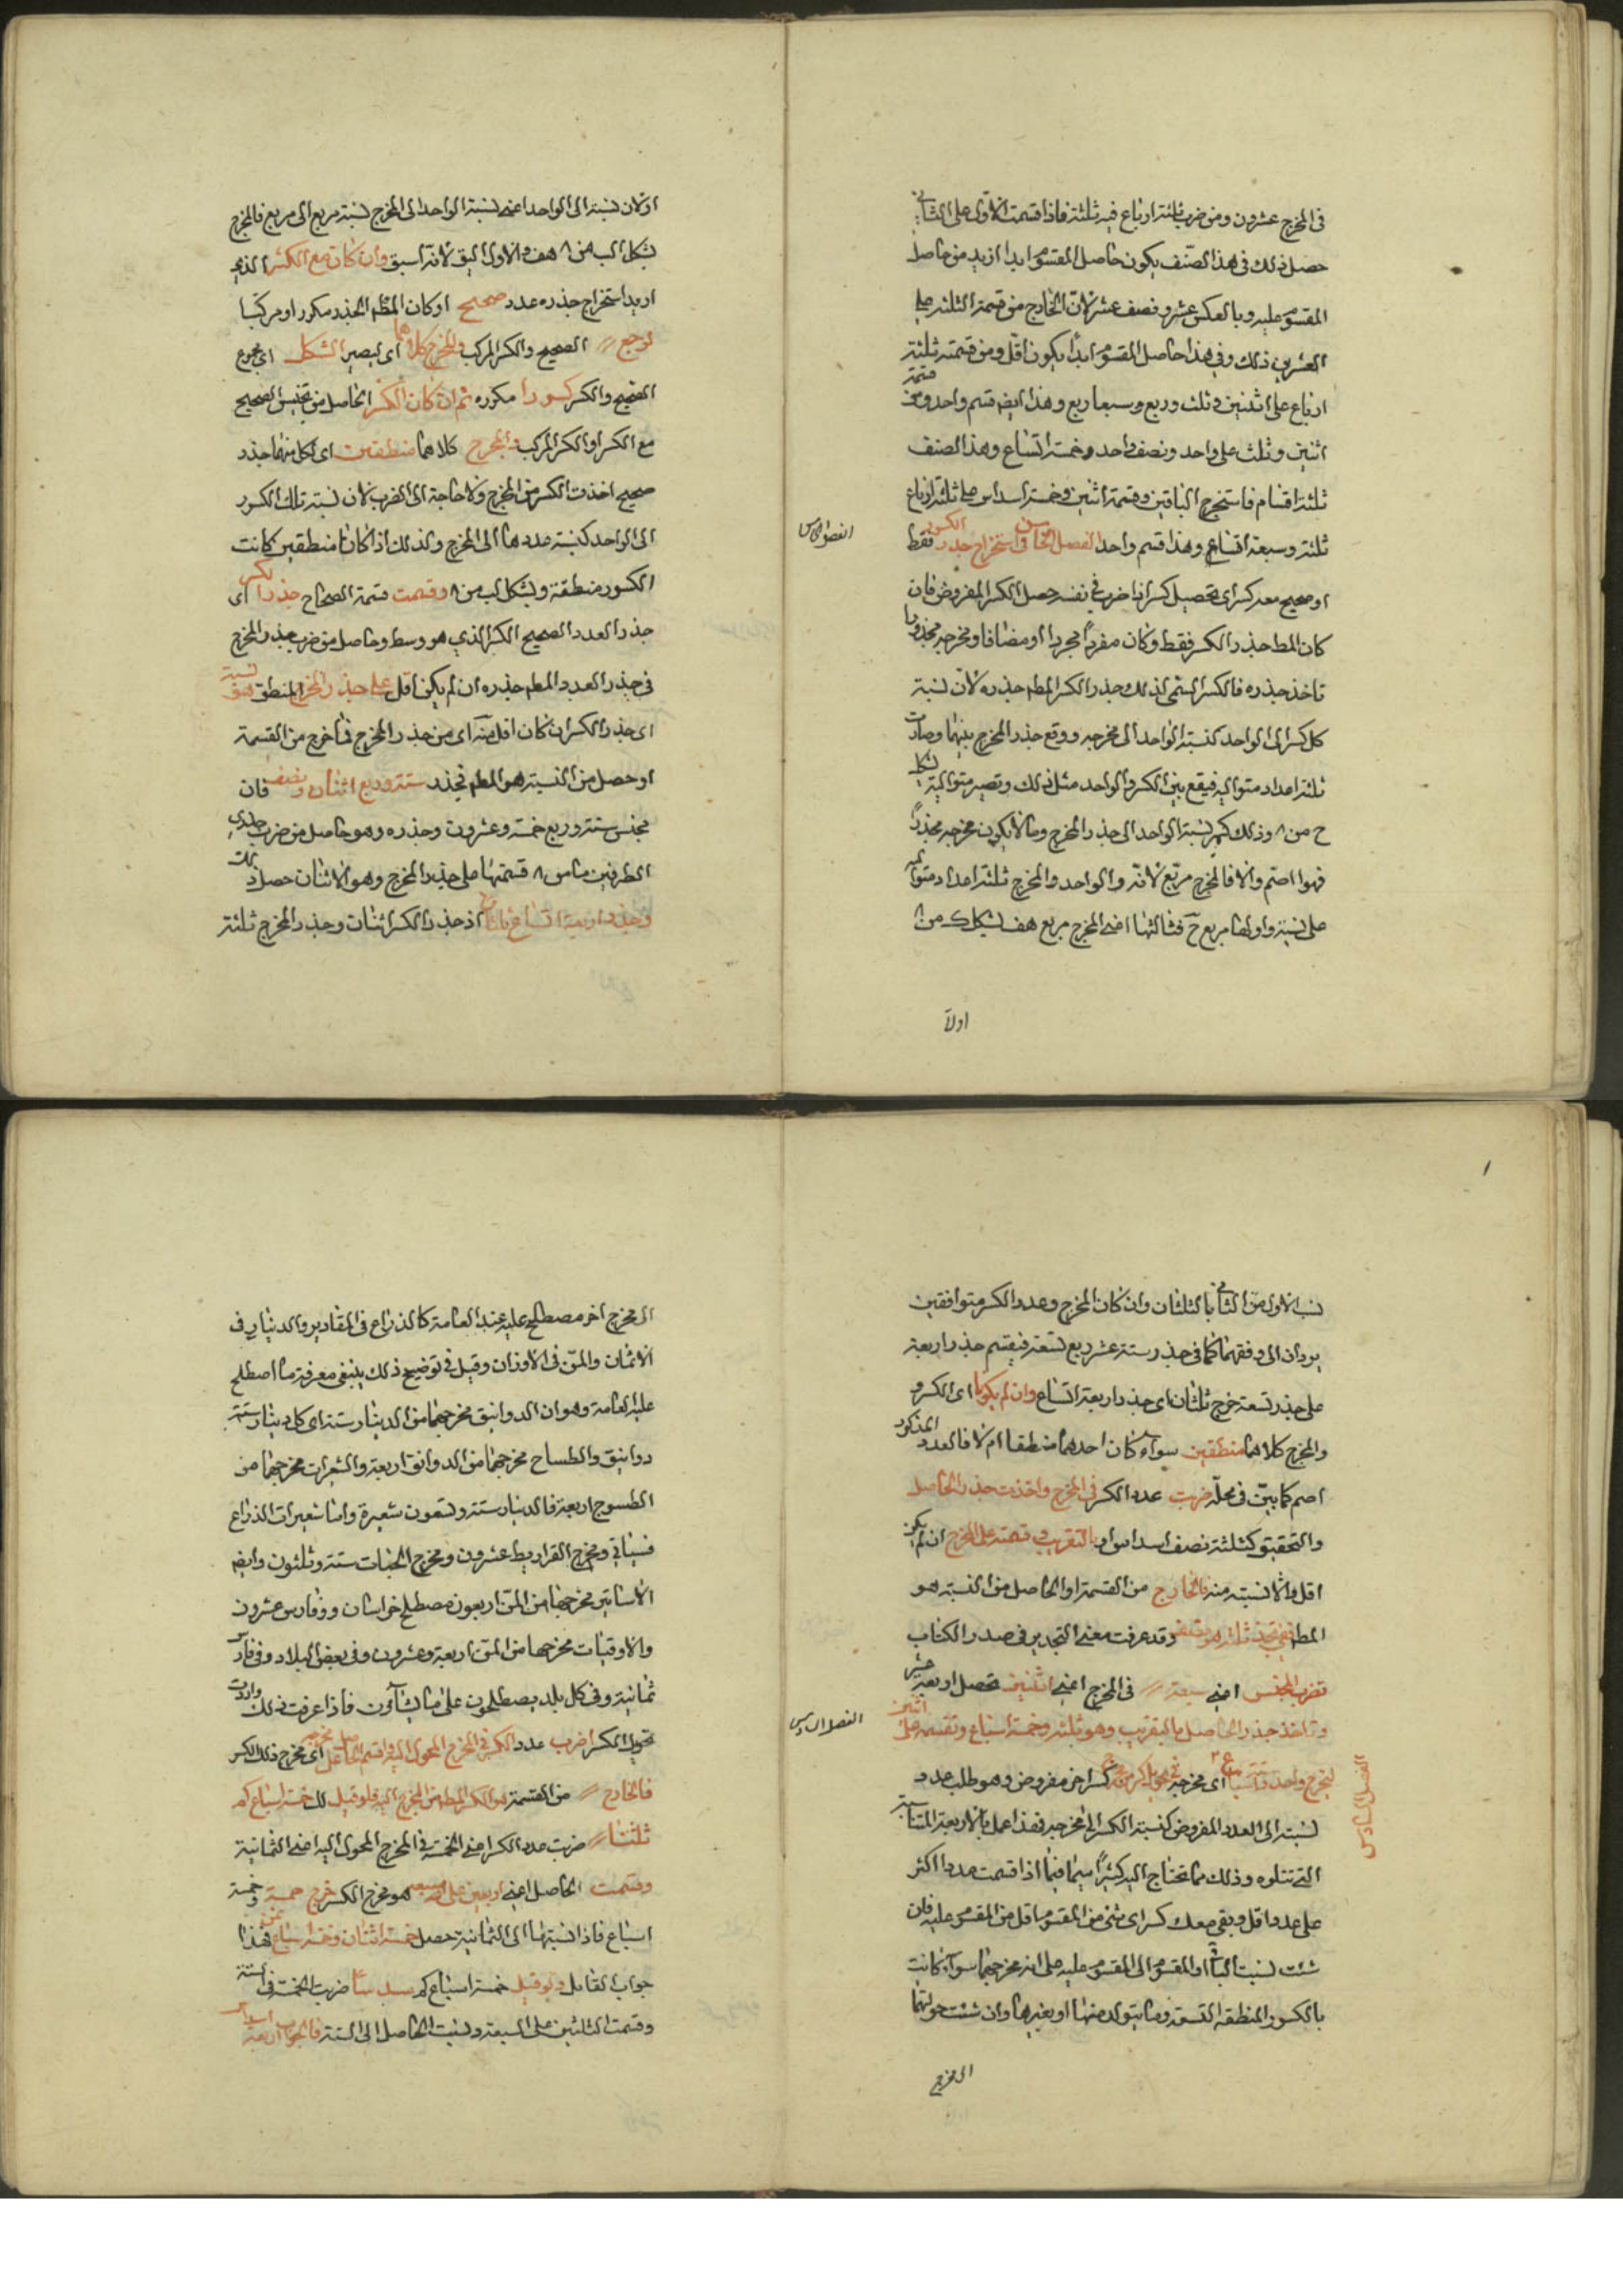 فى المخرج عشرون ومن ضرب ثلثة ارباع فيه ثلثة فاذا قسمت الاول على الثانى
حصل ذلك فى هذا الصنف يكون حاصل المقسوم ابدا ازيد من حاصل
المقسوم عليه وبالعكس عشر ونصف عشر لان الخارج من قسمة الثلثة على
العشرين ذلك وفى هذا حاصل المقسوم ابدا يكون اقل ومن قسمته ثلثة
ارباع على اثنين وثلث وربع وسبعا ربع وهذا ايضا قسم واحد ومن قسمة
اثنين وثلث على واحد ونصف واحد وخمسة اتساع وهذا الصنف
ثلثة اقسام فاستخرج الباقين وقسمة اثنين وخمسة اسداس على ثلثة ارباع
ثلثة وسبعة اتساع وهذا قسم واحد الفصل الخامس فى استخراج جذر الكسور فقط
الفصل الخامس
او صحيح معه كسر اى تحصيل كسر اذا ضرب فى نفسه حصل الكسر المفروض فان
كان المط جذر الكسر فقط وكان مفردا مجردا او مضافا ومخرجه مجذورا
تاخذ جذره فالكسر السمى لذلك جذر الكسر المطم جذره لان نسبة
كل كسر الى الواحد كنسبة الواحد الى مخرجه ووقع جذر المخرج بينهما وصارت
ثلثة اعداد متوالية فيقع بين الكسر والواحد مثل ذلك وتصير متوالية بشكل
ح من ٨ وذلك كنسبة الواحد الى جذر المخرج وما لا يكون مخرجه مجذورا
فهو اصم والا فالمخرج مربع لانه والواحد والمخرج ثلثة اعداد متوالية
على نسبة واولها مربع فثالثها اعنى المخرج مربع هف بشكل ك من ٨
اولا
اولان نسبته الى الواحد اعنى نسبة الواحد الى المخرج نسبة مربع الى مربع فالمخرج
بشكل الب من ٨ هف والاول اليق لانه اسبق وان كان مع الكسر الذى
اريد استخراج جذره عدد صحيح او كان المطم الجذر مكررا او مركبا
الصحيح والكسر المركب والمخرج كلاهما اى ليصير الشكل اى مجموع
الصحيح والكسر كسورا مكرره ثم ان كان الكسر الحاصل من تجنيس الصحيح
مع الكسر او الكسر المركب والمخرج كلاهما منطقين اى لكل منهما جذر
صحيح اخذت الكسر من المخرج ولا حاجة الى الضرب لان نسبة تلك الكسور
الى الواحد كنسبة عددها الى المخرج ولذلك اذا كانا منطقين كانت
الكسور منطقة وبشكل لب من ٨ وقسمت قسمة الصحاح جذر الكسر اى
جذر العدد الصحيح الكسر الذى هو وسط وحاصل من ضرب جذر المخرج
فى جذر العدد المطم جذره ان لم يكن اقل على جذر المخرج المنطق
اى جذر الكسر ان كان اقل منه اى من جذر المخرج فما خرج من القسمة
او حصل من النسبة هو المطم فجذر ستة وربع اثنان ونصف فان
مجنس ستة وربع خمسة وعشرون وجذره وهو حاصل من ضرب جذرى
الطرفين قسمتها على جذر المخرج وهو الاثنان حصل ذلك
وجذر اربعة اتساع ثلثان اذ جذر الكسر اثنان وجذر المخرج ثلثة
نسب الاول من الثانى بالثلثان وان كان المخرج وعدد الكسر متوافقين
يردان الى وفقهما كما فى جذر ستة عشر ربع تسعة فيقسم جذر اربعة
على جذر تسعة خرج ثلثان اى جذر اربعة اتساع وان لم يكونا اى الكسر و
والمخرج كلاهما منطقين سواء كان احدهما منطقا ام لا فالعدد المذكور
اصم كما بين فى محله ضربت عدد الكسر فى المخرج واخذت جذر الحاصل
والتحقيق كثلثة نصف اسداس او بالتقريب وقسمته على المخرج ان لم يكن
اقل والا نسبته منه فالخارج من القسمة او الحاصل من النسبة هو
المط ففى تجذير ثلثة ونصف وقد عرفت معنى التجذير فى صدر الكتاب
تضرب المجنس اعنى سبعة فى المخرج اعنى اثنين تحصل اربعة عشر
وتاخذ جذر الحاصل بالتقريب وهو ثلثة وخمسة اسباع وتقسمه على اثنين
الفصل السادس
ليخرج واحد وستة اسباع
الفصل السادس
اى مخرجه كسر اخر مفروض وهو طلب عدد
نسبته الى العدد المفروض كنسبة الكسر الى مخرجه فهذا عمل بالاربعة المتناسبة
التى تتلوه وذلك مما تحتاج اليه كثيرا سيما فيما اذا قسمت عددا اكثر
على عدد اقل وبقى معك كسر اى شئ من المقسوم اقل من المقسوم عليه فان
شئت نسبت الباقى او المقسوم الى المقسوم عليه على انه مخرجهما سواء كانت
بالكسور المنطقه التسعة وما يتولد منها او بغيرها وان شئت حولتهما
الى مخرج
الى مخرج اخر مصطلح عليه عند العامة كالذراع فى المقادير والدينار فى
الاثمان والمن فى الاوزان وقبل فى توضيح ذلك ينبغى معرفة ما اصطلح
عليه العامة وهو ان الدوانيق مخرجها من الدينار ستة اى كل دينار ستة
دوانيق والطساح مخرجها من الدوانق اربعة والشعيرات مخرجها من
الطسوج اربعة فالدينار ستة وتسعون شعيرة واما شعيرات الذراع
فسياتى ومخرج القراريط عشرون ومخرج الحبات ستة وثلثون وايضا
الاساتير مخرجها من المن اربعون مصطلح خراسان وفارس عشرون
والاوقيات مخرجها من المن اربعة وعشرون وفى بعض البلاد وفى فارس
ثمانية وفى كل بلد يصطلحون على ما يشآؤن فاذا عرفت ذلك واردت
تحويل الكسر اضرب عدد الكسر فى المخرج المحول اليه واقسم الحاصل على مخرجه اى مخرج ذلك الكسر
فالخارج من القسمة هو الكسر المطم من المخرج اليه فلو قيل لك خمسة اسباع كم
ثمنا ضربت عدد الكسر اعنى الخمسة فى المخرج المحول اليه اعنى الثمانية
وقسمت الحاصل اعنى اربعين على سبعة هو مخرج الكسر خرج خمسة وخمسة
اسباع فاذا نسبتها الى الثمانية حصل خمسة اثمان وخمسة اسباع ثمن هذا
جواب القائل ولو قيل خمسة اسباع كم سدسا ضربت الخمسة فى الستة
وقسمت الثلثين على السبعة ونسبت الحاصل الى الستة فالجواب اربعة اسداس